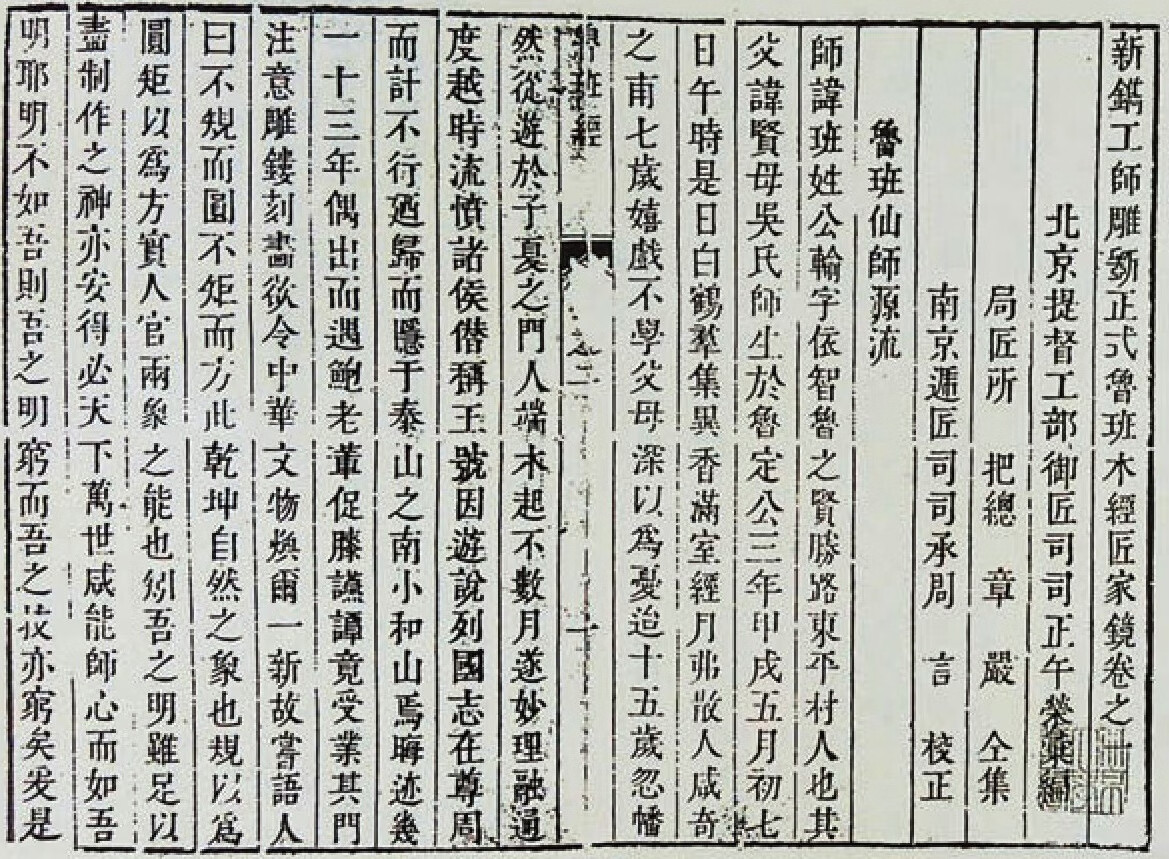 新鐫工師雕斲正式魯班木經匠家鏡卷之
北京提督工部御匠司司正午榮彙編
局匠所 把總 章 嚴 仝集
南京遞匠司司承周 言 校正
魯班仙師源流
師諱班姓公輸字依智魯之賢勝路東平村人也其
父諱賢母吳氏師生於魯定公三年甲戌五月初七
日午時是日白鶴羣集異香滿室經月弗散人咸奇
之甫七歲嬉戲不學父母深以爲憂迨十五歲忽幡
魯班經
然從遊於子夏之門人端木起不數月遂妙理融通
度越時流憤諸侯僭稱王號因遊說列國志在尊周
而計不行廼歸而隱于泰山之南小和山焉晦迹幾
一十三年偶出而遇鮑老軰促膝讌譚竟受業其門
注意雕鏤刻畵欲令中華文物煥爾一新故嘗語人
曰不規而圓不矩而方此乾坤自然之象也規以爲
圓矩以爲方實人官兩象之能也矧吾之明雖足以
盡制作之神亦安得必天下萬世咸能師心而如吾
明耶明不如吾則吾之明窮而吾之技亦窮矣爰是